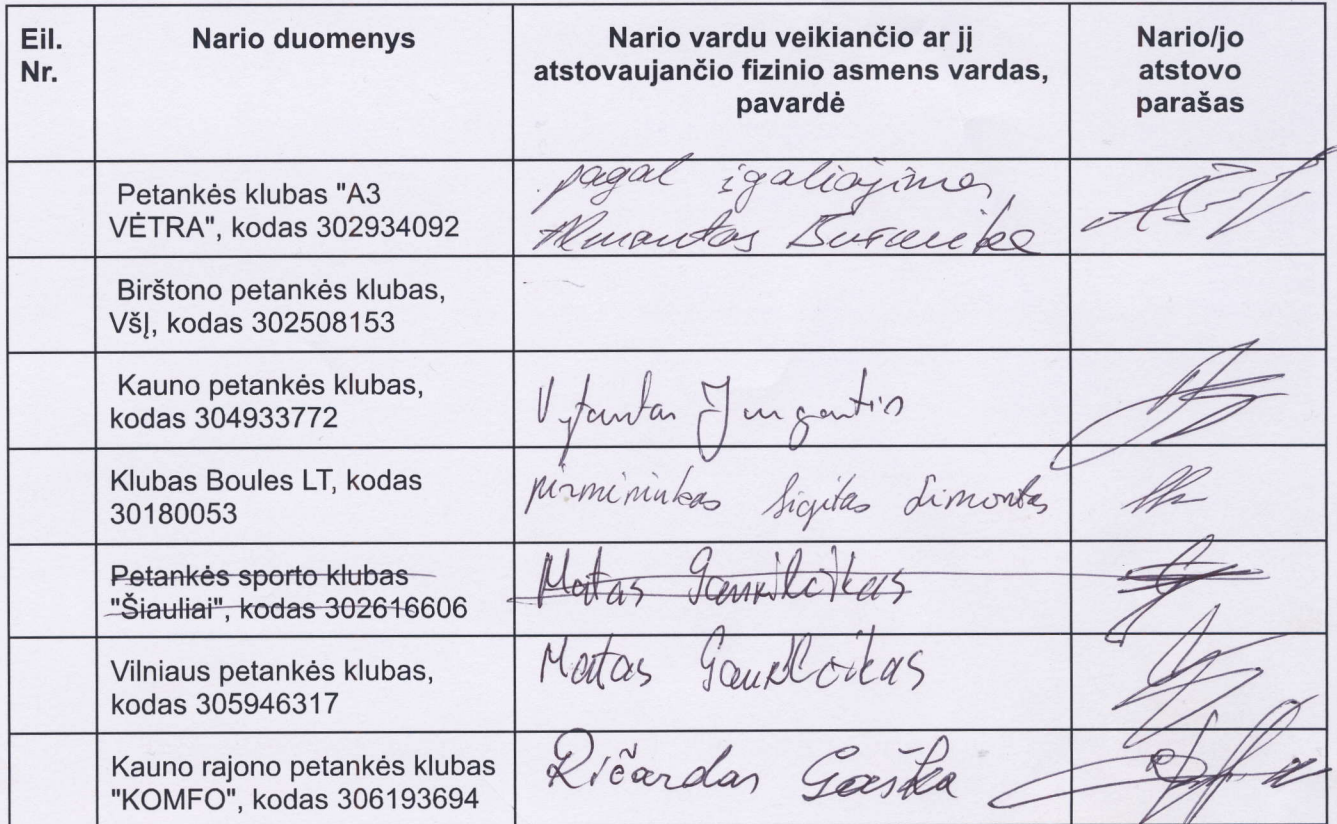 Eil.
Nr.
Nario duomenys
Nario vardu veikiančio ar jį
atstovaujančio fizinio asmens vardas,
pavardė
Nario/jo
atstovo
parašas
Petankės klubas "A3
VĖTRA", kodas 302934092
pagal įgaliojimą
Almantas
Birštono petankės klubas,
VšĮ, kodas 302508153
Kauno petankės klubas,
kodas 304933772
Vytautas
Klubas Boules LT, kodas
30180053
pirmininkas Sigitas Simontas
Petankės sporto klubas
"Šiauliai", kodas 302616606
Matas
Vilniaus petankės klubas,
kodas 305946317
Matas
Kauno rajono petankės klubas
"KOMFO", kodas 306193694
Ričardas Gaška